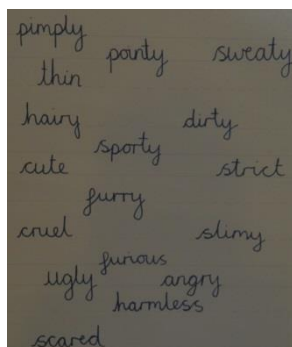 pimply
panty sweaty
thin
hairy dirty
sporty
cute strict
furry
cruel slimy
furious
ugly angry
harmless
scared